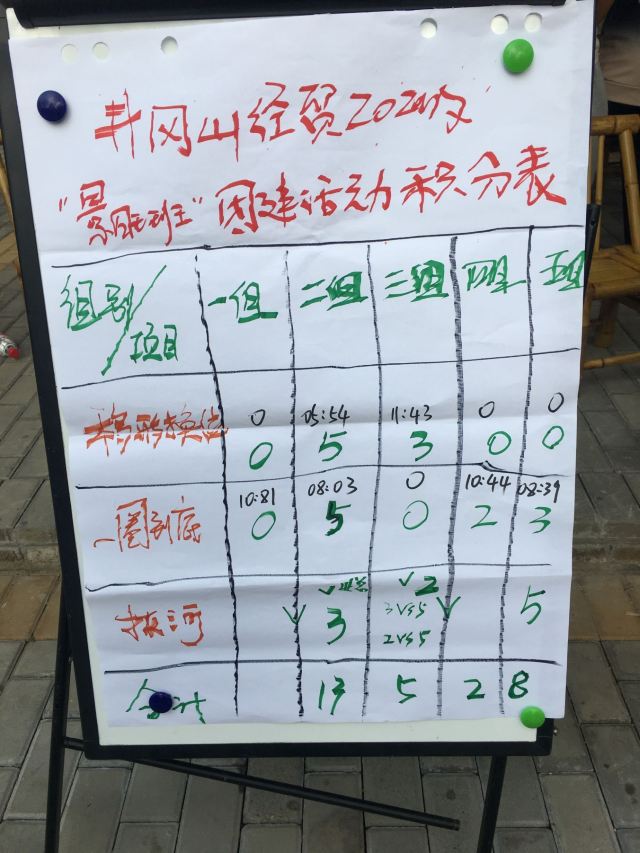 井冈山经贸2020级
"景融班主"团建活动积分表
组别/项目 一组 二组 三组 四组 五组
移形换位 0 05:54 11:43 0 0
0 5 3 0 0
一圈到底 10:81 08:03 0 10:44 08:39
0 5 0 2 3
拔河 3 √2 5
3vs5
2vs5
合计 13 5 2 8